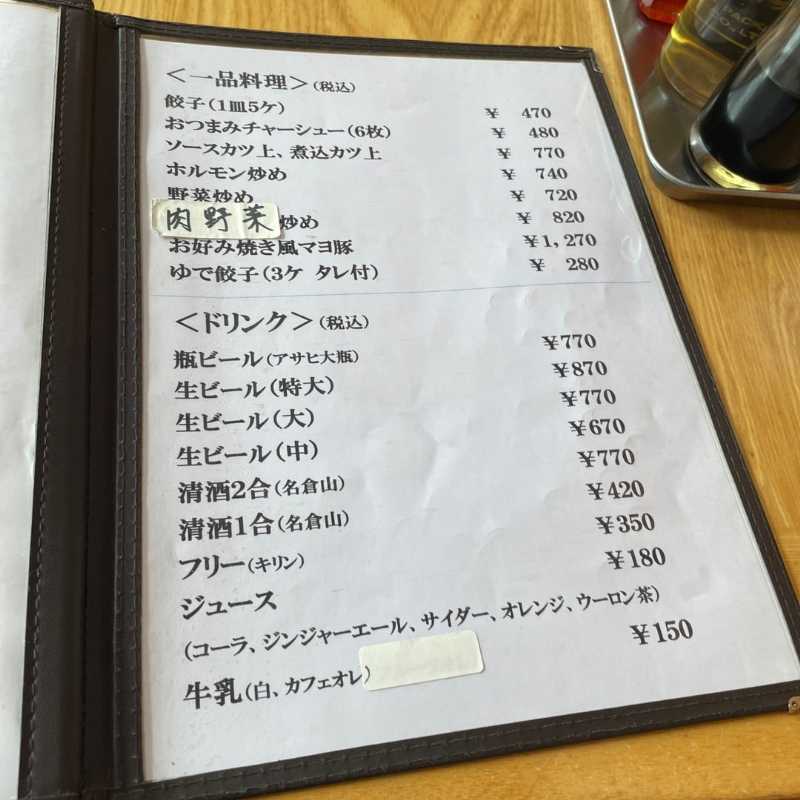 <一品料理>(税込)
餃子(1皿5ケ) ¥ 470
おつまみチャーシュー(6枚) ¥ 480
ソースカツ上、煮込カツ上 ¥ 770
ホルモン炒め ¥ 740
野菜炒め ¥ 720
肉野菜炒め ¥ 820
お好み焼き風マヨ豚 ¥1,270
ゆで餃子(3ケ タレ付) ¥ 280
<ドリンク>(税込)
瓶ビール(アサヒ大瓶) ¥770
生ビール(特大) ¥870
生ビール(大) ¥770
生ビール(中) ¥670
清酒2合(名倉山) ¥770
清酒1合(名倉山) ¥420
フリー(キリン) ¥350
ジュース ¥180
(コーラ、ジンジャーエール、サイダー、オレンジ、ウーロン茶)
牛乳(白、カフェオレ) ¥150